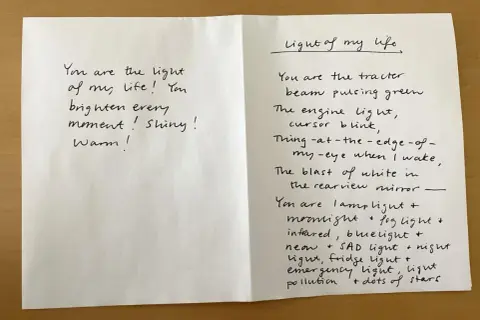 You are the light
of my life! You
brighten every
moment! Shiny!
Warm!
Light of my life
You are the tracter
beam pulsing green
The engine light,
cursor blink,
Thing-at-the-edge-of-
my-eye when I wake,
The blast of white in
the rearview mirror —
You are lamplight +
moonlight + foglight +
infrared, bluelight +
neon + SAD light + night
light, fridge light +
emergency light, light
pollution + dots of stars